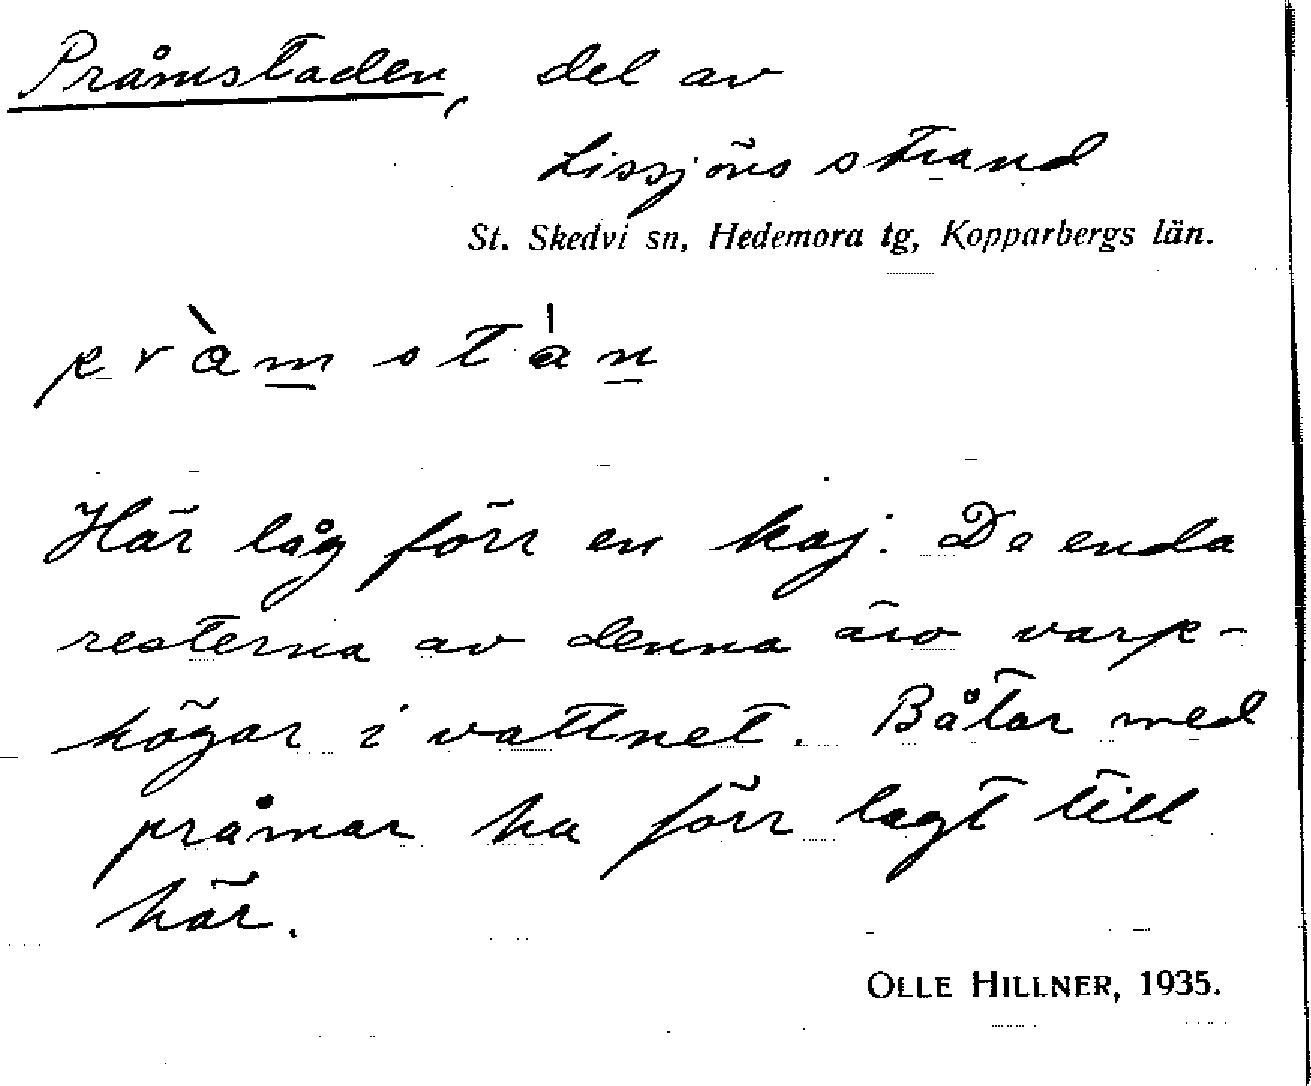 Pråmstaden, del av
Lissjöns strand
St. Skedvi sn, Hedemora tg, Kopparbergs län.
pràmstán
Här låg förr en kaj. De enda
resterna av denna äro varp-
högar i vattnet. Båtar med
pråmar ha förr lagt till
här.
OLLE HILLNER, 1935.